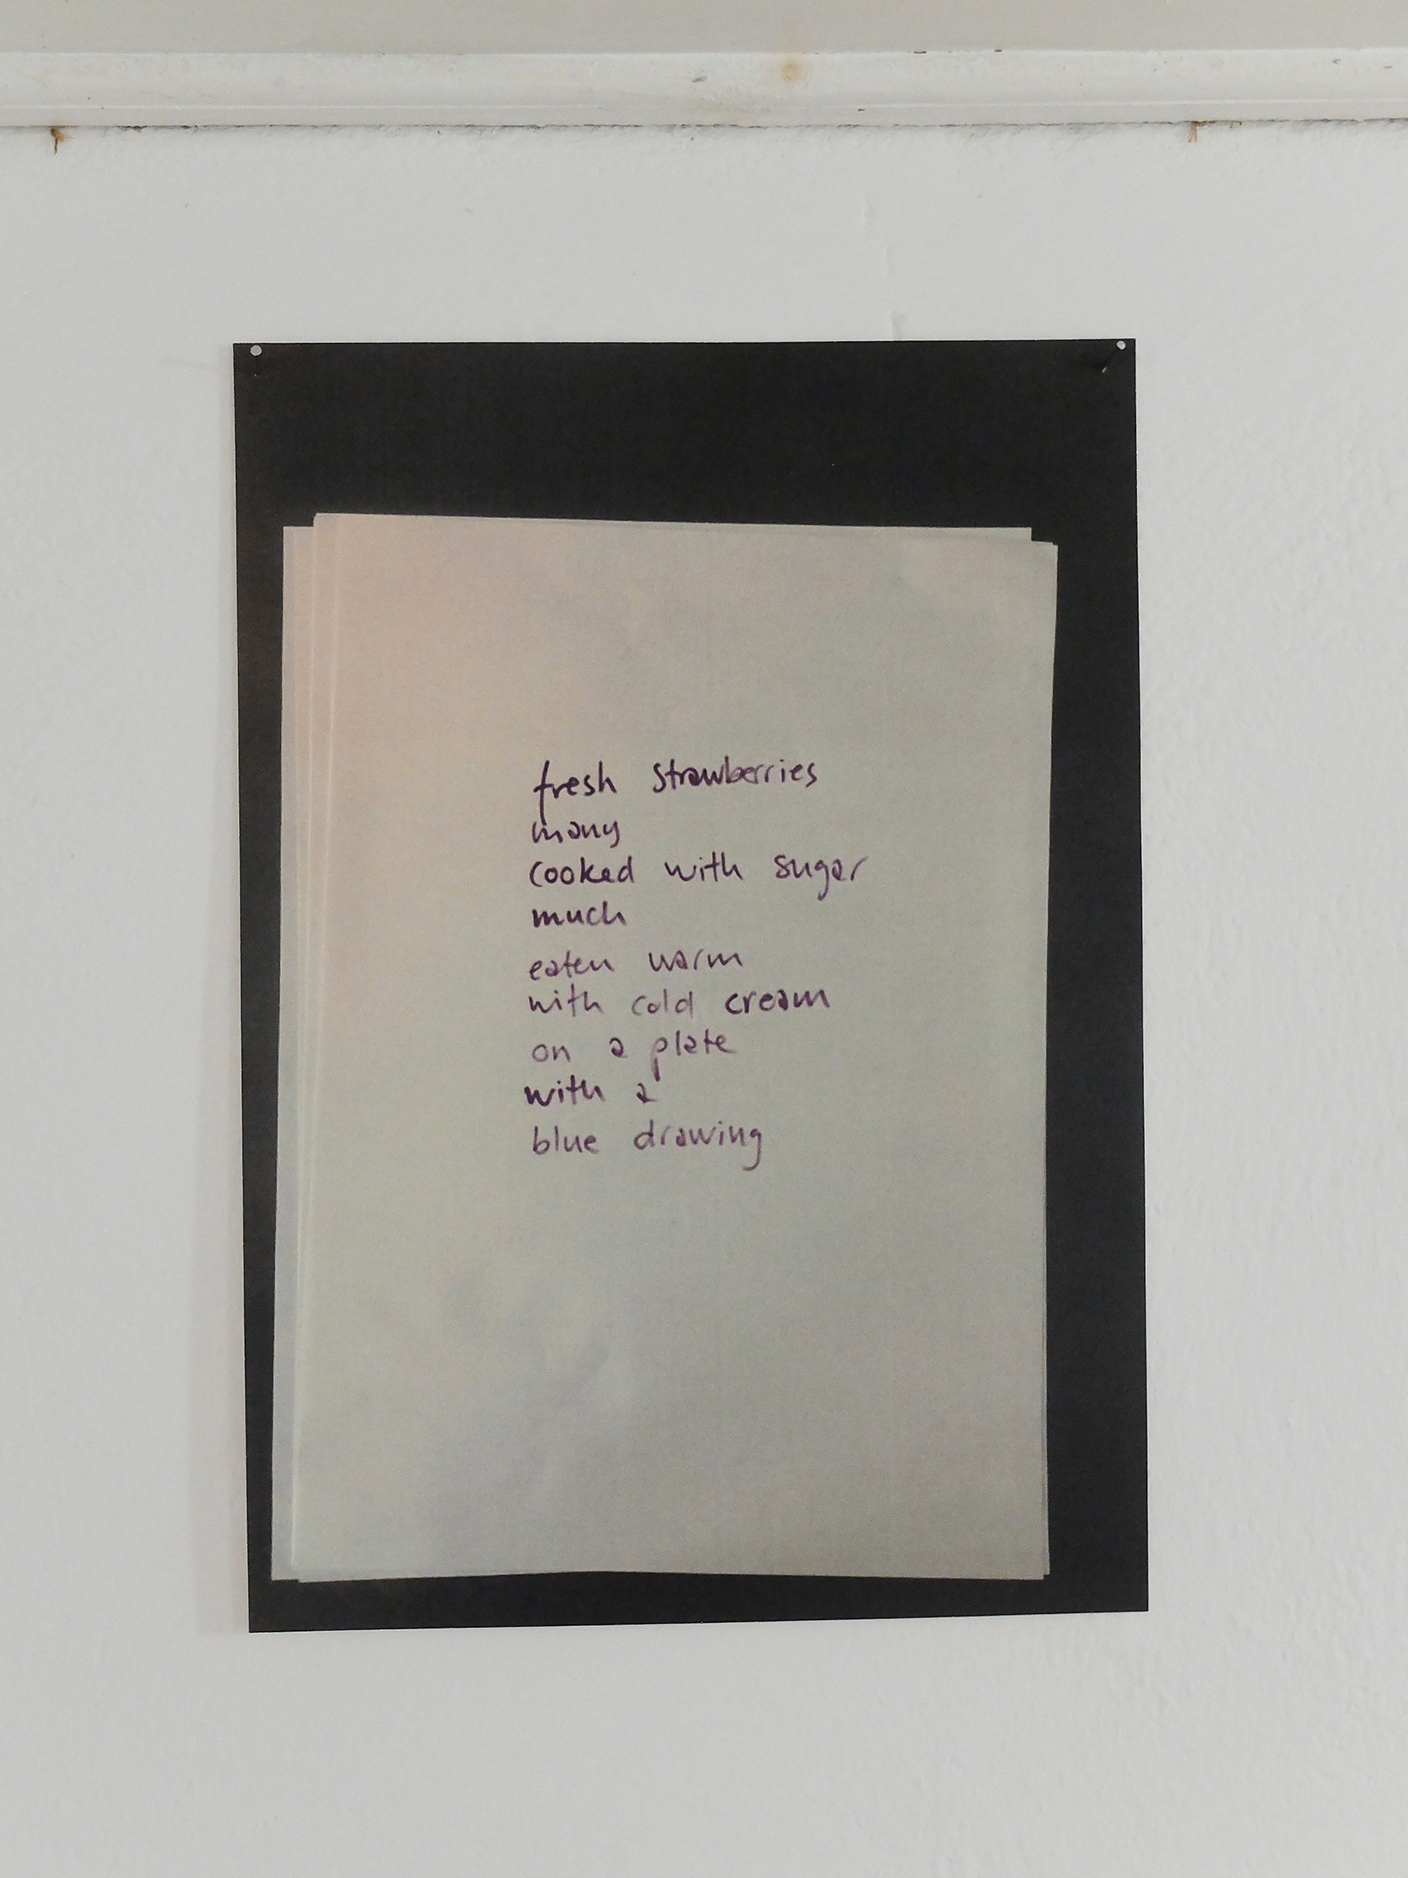 fresh strawberries
many
cooked with sugar
much
eaten warm
with cold cream
on a plate
with a
blue drawing